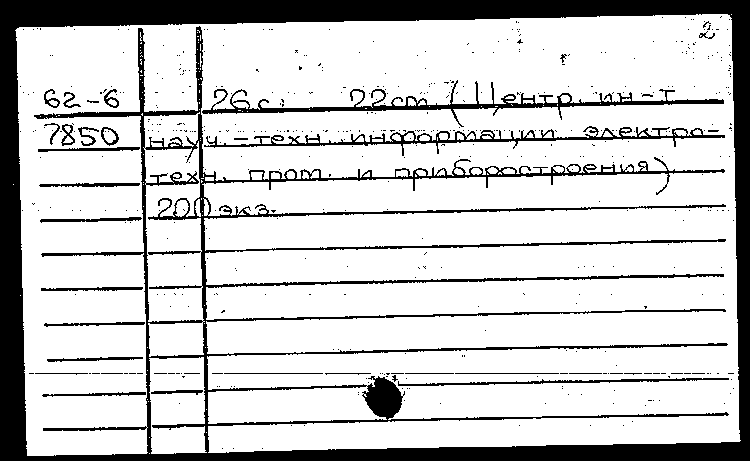 2
62-6 26 с. 22 cm (Центр. ин-т
7850 науч.-техн. информации электро-
техн. пром. и приборостроения)
200 экз.